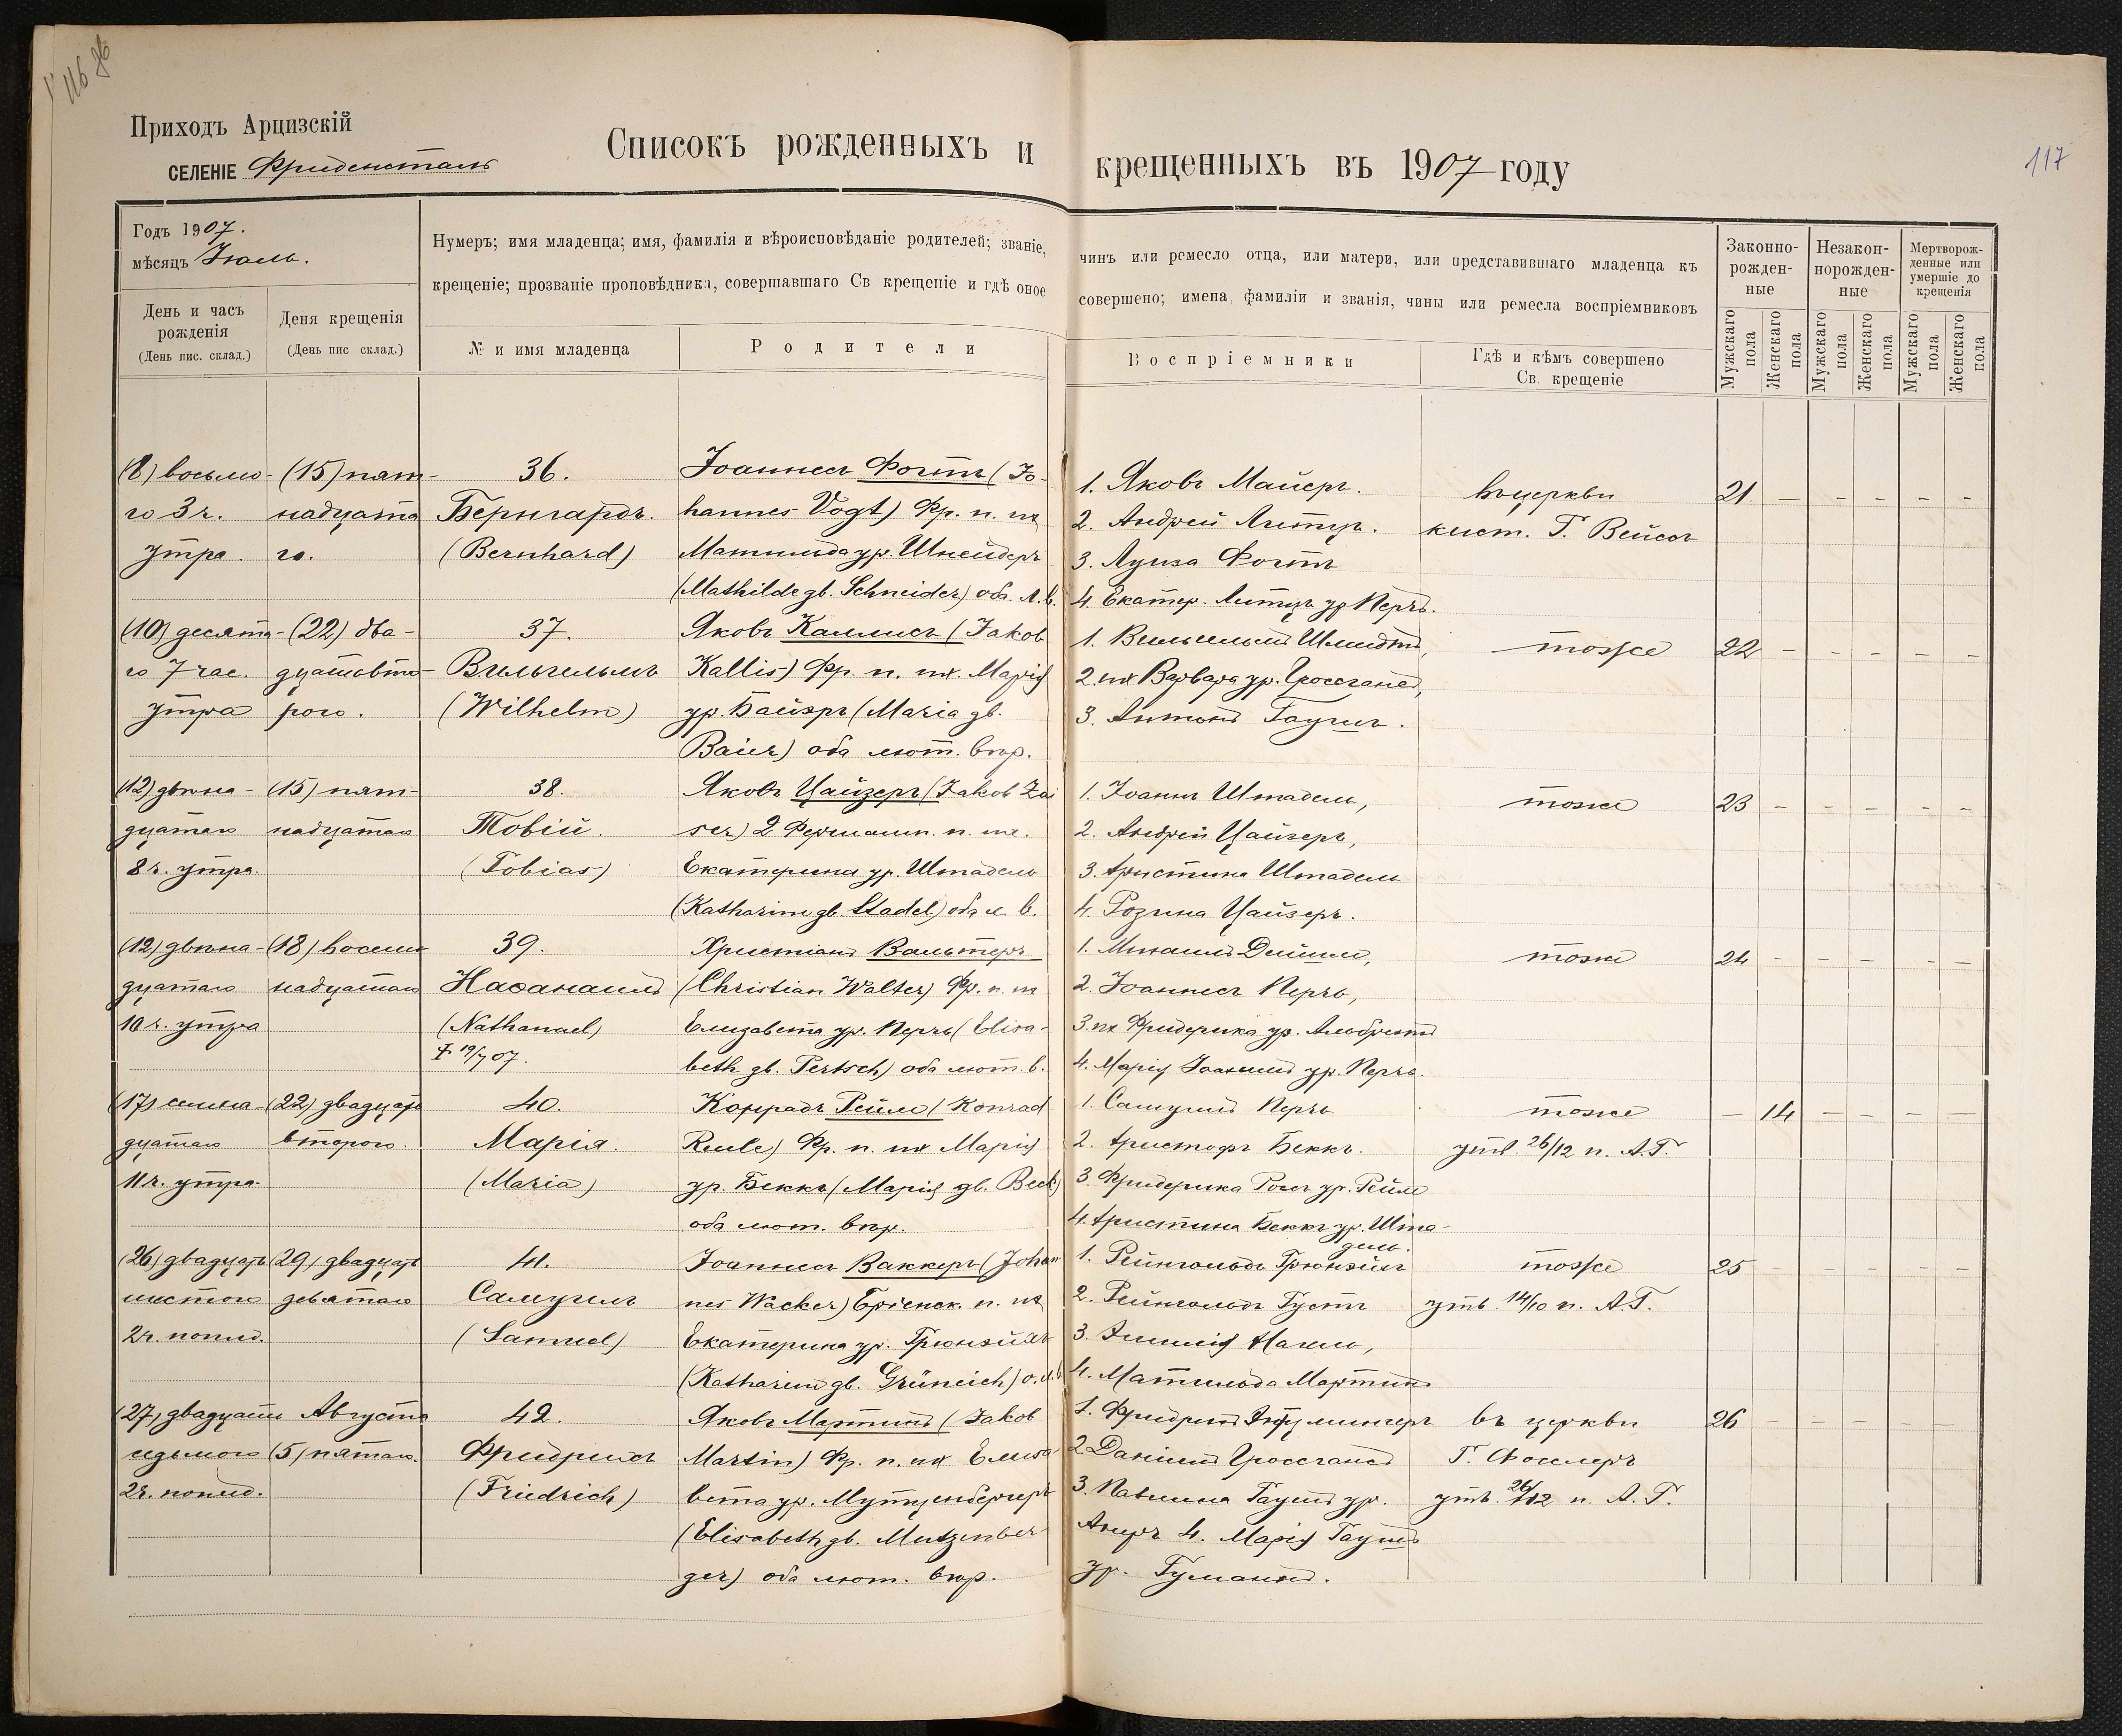 116 об
117
Приходъ Арцизскій
СЕЛЕНІЕ Фриденсталь
Списокъ рожденныхъ и крещенныхъ въ 1907 году
Годъ 1907.
мѣсяцъ Іюль.
День и часъ рожденія
(День пис. склад.)
Деня крещенія
(День пис склад.)
Нумеръ; имя младенца; имя, фамилія и вѣроисповѣданіе родителей; званіе, чинъ или ремесло отца, или матери, или представившаго младенца къ
крещенію; прозваніе проповѣдника, совершавшаго Св крещеніе и гдѣ оное совершено; имена, фамиліи и званія, чины или ремесла воспріемниковъ
№ и имя младенца
Родители
Воспріемники
Гдѣ и кѣмъ совершено
Св. крещеніе
Законно-
рожден-
ные
Незакон-
норожден-
ные
Мертворож-
денные или
умершіе до
крещенія
Мужскаго пола
Женскаго пола
Мужскаго пола
Женскаго пола
Мужскаго пола
Женскаго пола
(8) восьмо-
го 3 ч.
утра.
(15) пят-
надцата
го.
36.
Бернгардъ.
(Bernhard)
Іоаннесъ Фогтъ (Jo-
hannes Vogt) Фр. п. и ж
Матильда ур. Шнейдеръ
(Mathilde gb. Schneider) оба л. в.
1. Яковъ Майеръ.
2. Андрей Литцъ.
3. Луиза Фогтъ
4. Екатер. Литцъ ур Перчъ.
въ церкви
кист. Г. Вейсъ
21 - - - - -
(10) десята-
го 7 час.
утра
(22) два-
дцатьвто-
рого.
37.
Вильгельмъ
(Wilhelm)
Яковъ Каллисъ (Jakob
Kallis) Фр. п. и ж. Марія
ур. Байэръ (Maria gb.
Baier) оба лют. вѣр.
1. Вильгельмъ Шмидтъ,
2. и ж Варвара ур. Гроссгансъ,
3. Антонъ Гаушъ.
тоже
22 - - - - -
(12) двѣна-
дцатаго
8 ч. утра.
(15) пят-
надцатаго
38.
Товій.
(Tobias)
Яковъ Цайзеръ (Jakob Zai
ser) 2 Фершамп. п. и ж.
Екатерина ур. Штадель
(Katharina gb. Stadel) оба л. в.
1. Іоаннъ Штадель,
2. Андрей Цайзеръ,
3. Христина Штадель
4. Розина Цайзеръ.
тоже
23 - - - - -
(12) двѣна-
дцатаго
10 ч. утра
(18) восем
надцатаго
39.
Наѳанаилъ
(Nathanael)
† 19/7 07.
Христіанъ Вальтеръ
(Christian Walter) Фр. п. и ж
Елизавета ур. Перчъ (Elisa-
beth gb. Pertsch) оба лют. в.
1. Михаилъ Дейшле,
2. Іоаннесъ Перчъ,
3. и ж Фридерика ур. Альбрехтъ
4. Марія Іоахимъ ур. Перчъ.
тоже
24 - - - - -
(17) семна-
дцатаго
11 ч. утра.
(22) двадцать
второго.
40.
Марія.
(Maria)
Конрадъ Рейле (Konrad
Reule) Фр. п. и ж Марія
ур. Беккъ (Марія gb. Beck)
оба лют. вѣр.
1. Самуилъ Перчъ
2. Христофъ Беккъ.
3. Фридерика Росъ ур. Рейле
4. Христина Беккъ ур. Шта-
дель.
тоже
утв. 26/12 п. А. Г.
- 14 - - - -
(26) двадцать
шестого
2 ч. попол.
(29) двадцать
девятаго
41.
Самуилъ
(Samuel)
Іоаннесъ Ваккеръ (Johan
nes Wacker) Бріенск. п. и ж
Екатерина ур. Грюнэйхъ
(Katharina gb. Grüneich) о. л. в
1. Рейнгольдъ Грюнэйхъ
2. Рейнгольдъ Густъ
3. Эмилія Нагель,
4. Матильда Мартинъ
тоже
утв. 14/10 п. А. Г.
25 - - - - -
(27) двадцать
седьмого
2 ч. попол.
Августа
(5) пятаго.
42.
Фридрихъ
(Friedrich)
Яковъ Мартинъ (Jakob
Martin) Фр. п. и ж Елиза
вета ур. Мутценбергеръ
(Elisabeth gb. Mutzenber-
ger) оба лют. вѣр.
1. Фридрихъ
2. Даніилъ Гроссгансъ
3. Павлина Гаушъ ур.
4. Марія Гаушъ
ур. Гуманнъ.
въ церкви
Г. Фосслеръ
утв. 26/12 п. А. Г.
26 - - - - -